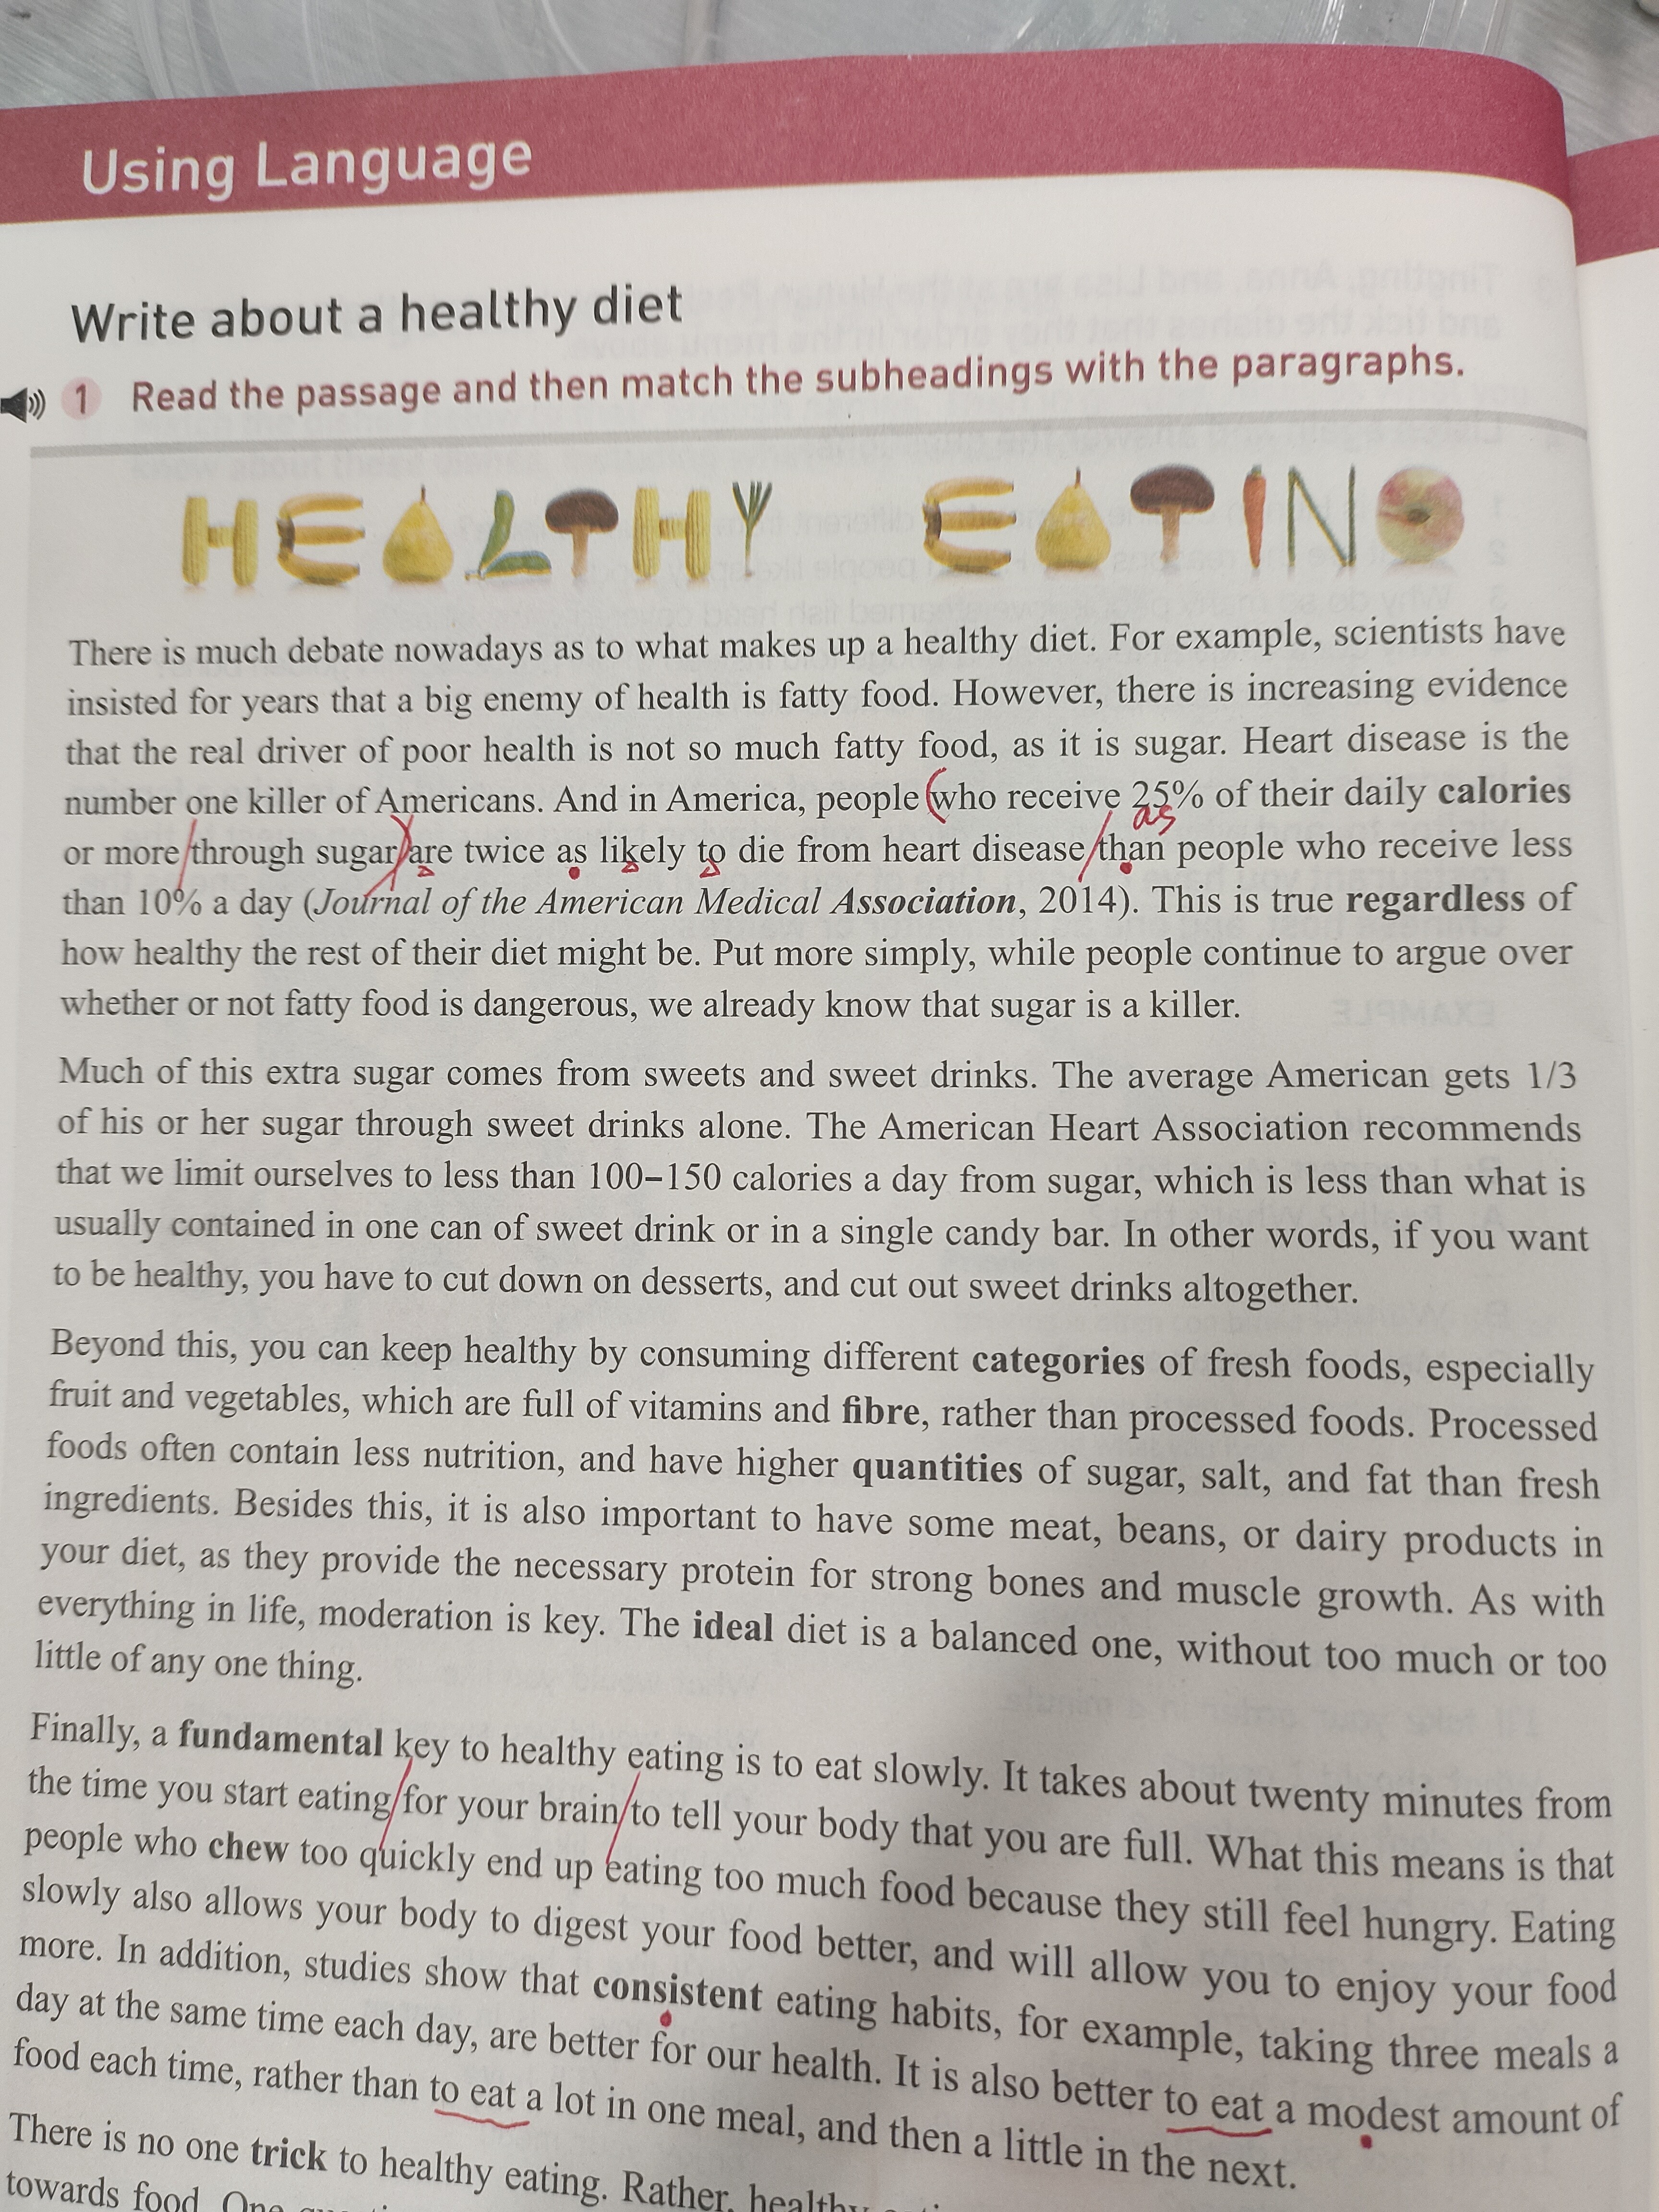 Using Language
Write about a healthy diet
1 Read the passage and then match the subheadings with the paragraphs.
HEALTHY EATING
There is much debate nowadays as to what makes up a healthy diet. For example, scientists have
insisted for years that a big enemy of health is fatty food. However, there is increasing evidence
that the real driver of poor health is not so much fatty food, as it is sugar. Heart disease is the
number one killer of Americans. And in America, people who receive 25% of their daily calories
as
or more through sugar are twice as likely to die from heart disease than people who receive less
than 10% a day (Journal of the American Medical Association, 2014). This is true regardless of
how healthy the rest of their diet might be. Put more simply, while people continue to argue over
whether or not fatty food is dangerous, we already know that sugar is a killer.
Much of this extra sugar comes from sweets and sweet drinks. The average American gets 1/3
of his or her sugar through sweet drinks alone. The American Heart Association recommends
that we limit ourselves to less than 100–150 calories a day from sugar, which is less than what is
usually contained in one can of sweet drink or in a single candy bar. In other words, if you want
to be healthy, you have to cut down on desserts, and cut out sweet drinks altogether.
Beyond this, you can keep healthy by consuming different categories of fresh foods, especially
fruit and vegetables, which are full of vitamins and fibre, rather than processed foods. Processed
foods often contain less nutrition, and have higher quantities of sugar, salt, and fat than fresh
ingredients. Besides this, it is also important to have some meat, beans, or dairy products in
your diet, as they provide the necessary protein for strong bones and muscle growth. As with
everything in life, moderation is key. The ideal diet is a balanced one, without too much or too
little of any one thing.
Finally, a fundamental key to healthy eating is to eat slowly. It takes about twenty minutes from
the time you start eating for your brain to tell your body that you are full. What this means is that
people who chew too quickly end up eating too much food because they still feel hungry. Eating
slowly also allows your body to digest your food better, and will allow you to enjoy your food
more. In addition, studies show that consistent eating habits, for example, taking three meals a
day at the same time each day, are better for our health. It is also better to eat a modest amount of
food each time, rather than to eat a lot in one meal, and then a little in the next.
There is no one trick to healthy eating. Rather, healthy
towards food. One